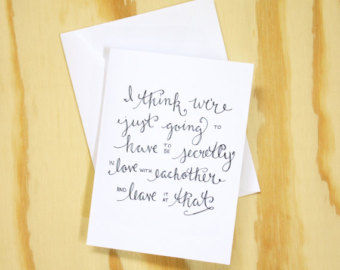 I think we're
just going TO
have TO BE secretly
IN love WITH eachother
AND leave IT AT that.